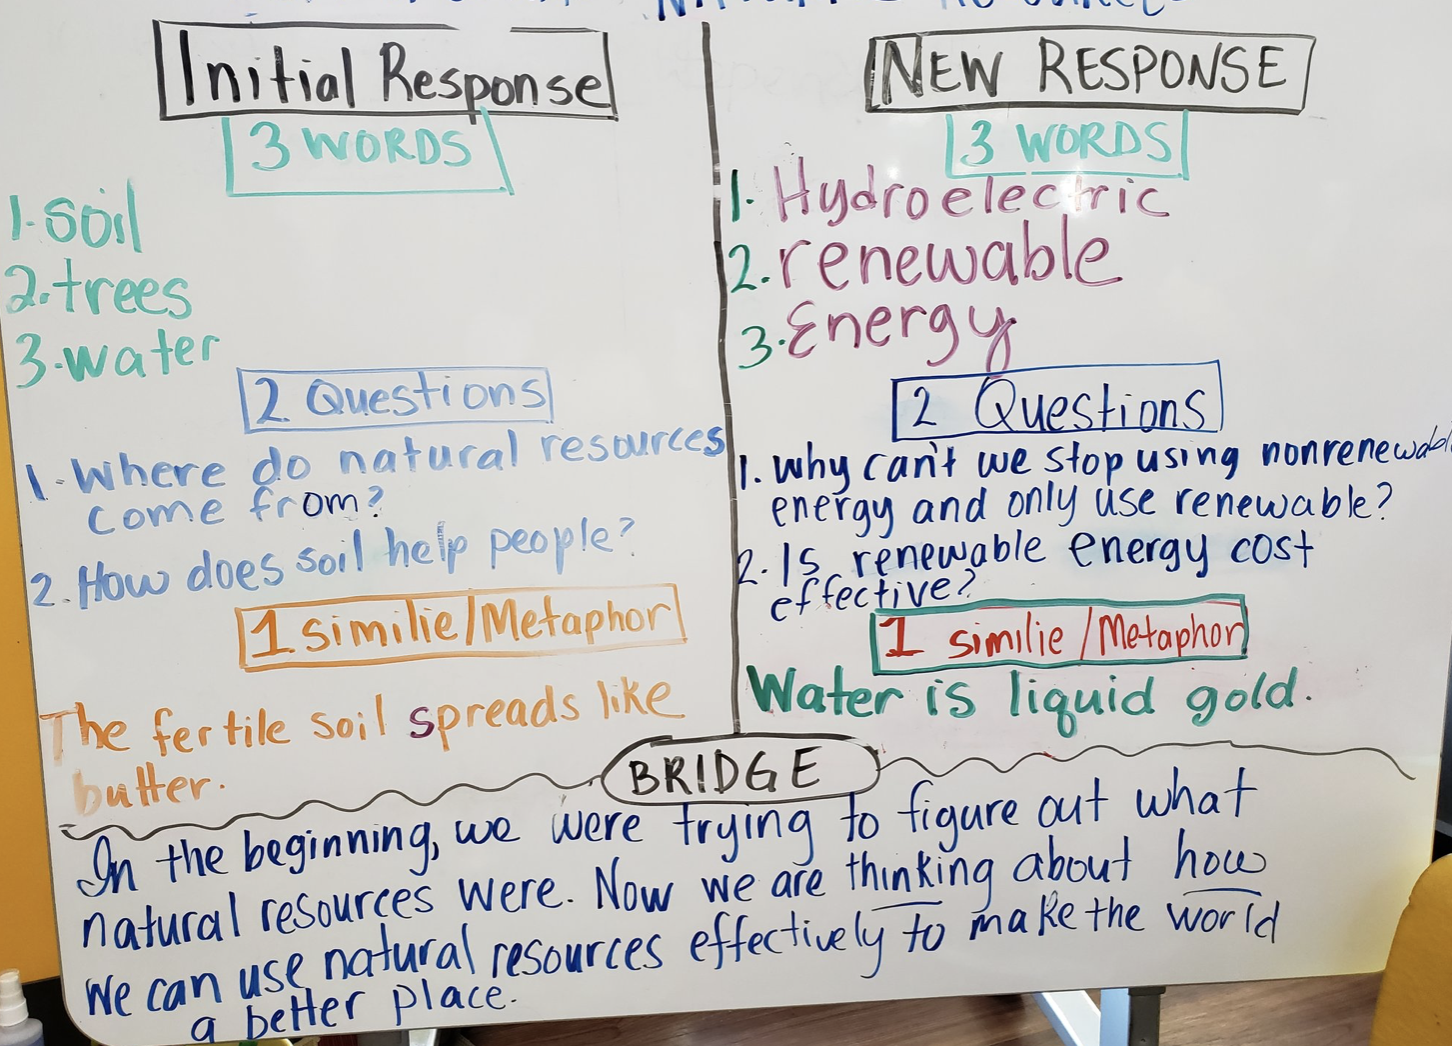 Initial Response
3 WORDS
1. soil
2. trees
3. water
2 Questions
1. Where do natural resources
come from?
2. How does soil help people?
1 similie/Metaphor
The fertile soil spreads like
butter.
NEW RESPONSE
3 WORDS
1. Hydroelectric
2. renewable
3. Energy
2 Questions
1. Why can't we stop using nonrenewable
energy and only use renewable?
2. Is renewable energy cost
effective?
1 similie/Metaphor
Water is liquid gold.
BRIDGE
In the beginning, we were trying to figure out what
natural resources were. Now we are thinking about how
we can use natural resources effectively to make the world
a better place.